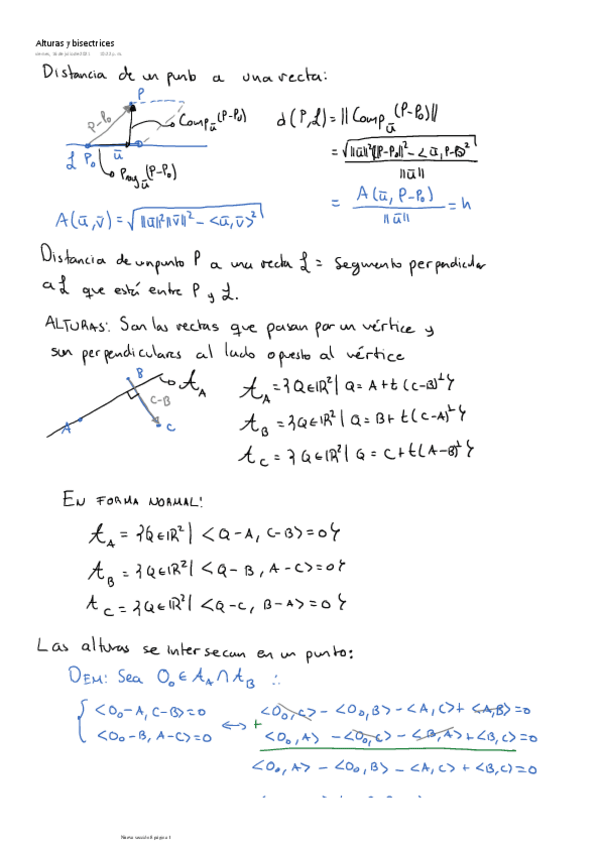 Alturas y bisectrices
Distancia de un punto a una recta:
P
P-P₀
Comp_ū(P-P₀)
d(P,L)=||Comp_ū(P-P₀)||
L P₀ ū
Proy_ū(P-P₀)
= √(||ū||²||P-P₀||² - <ū,P-P₀>²) / ||ū||
= A(ū, P-P₀) / ||ū|| = h
A(ū,v̄) = √(||ū||²||v̄||² - <ū,v̄>²)
Distancia de un punto P a una recta L = Segmento perpendicular
a L que está entre P y L.
ALTURAS: Son las rectas que pasan por un vértice y
son perpendiculares al lado opuesto al vértice
B
A_A
C-B
A
C
A_A = {Q∈ℝ² | Q = A+t(C-B)^⊥}
A_B = {Q∈ℝ² | Q = B+t(C-A)^⊥}
A_C = {Q∈ℝ² | Q = C+t(A-B)^⊥}
EN FORMA NORMAL:
A_A = {Q∈ℝ² | <Q-A, C-B>=0}
A_B = {Q∈ℝ² | <Q-B, A-C>=0}
A_C = {Q∈ℝ² | <Q-C, B-A>=0}
Las alturas se intersecan en un punto:
DEM: Sea O₀∈A_A∩A_B ∴
{ <O₀-A, C-B>=0
<O₀-B, A-C>=0
↔
<O₀,C> - <O₀,B> - <A,C> + <A,B> = 0
+ <O₀,A> - <O₀,C> - <B,A> + <B,C> = 0
<O₀,A> - <O₀,B> - <A,C> + <B,C> = 0